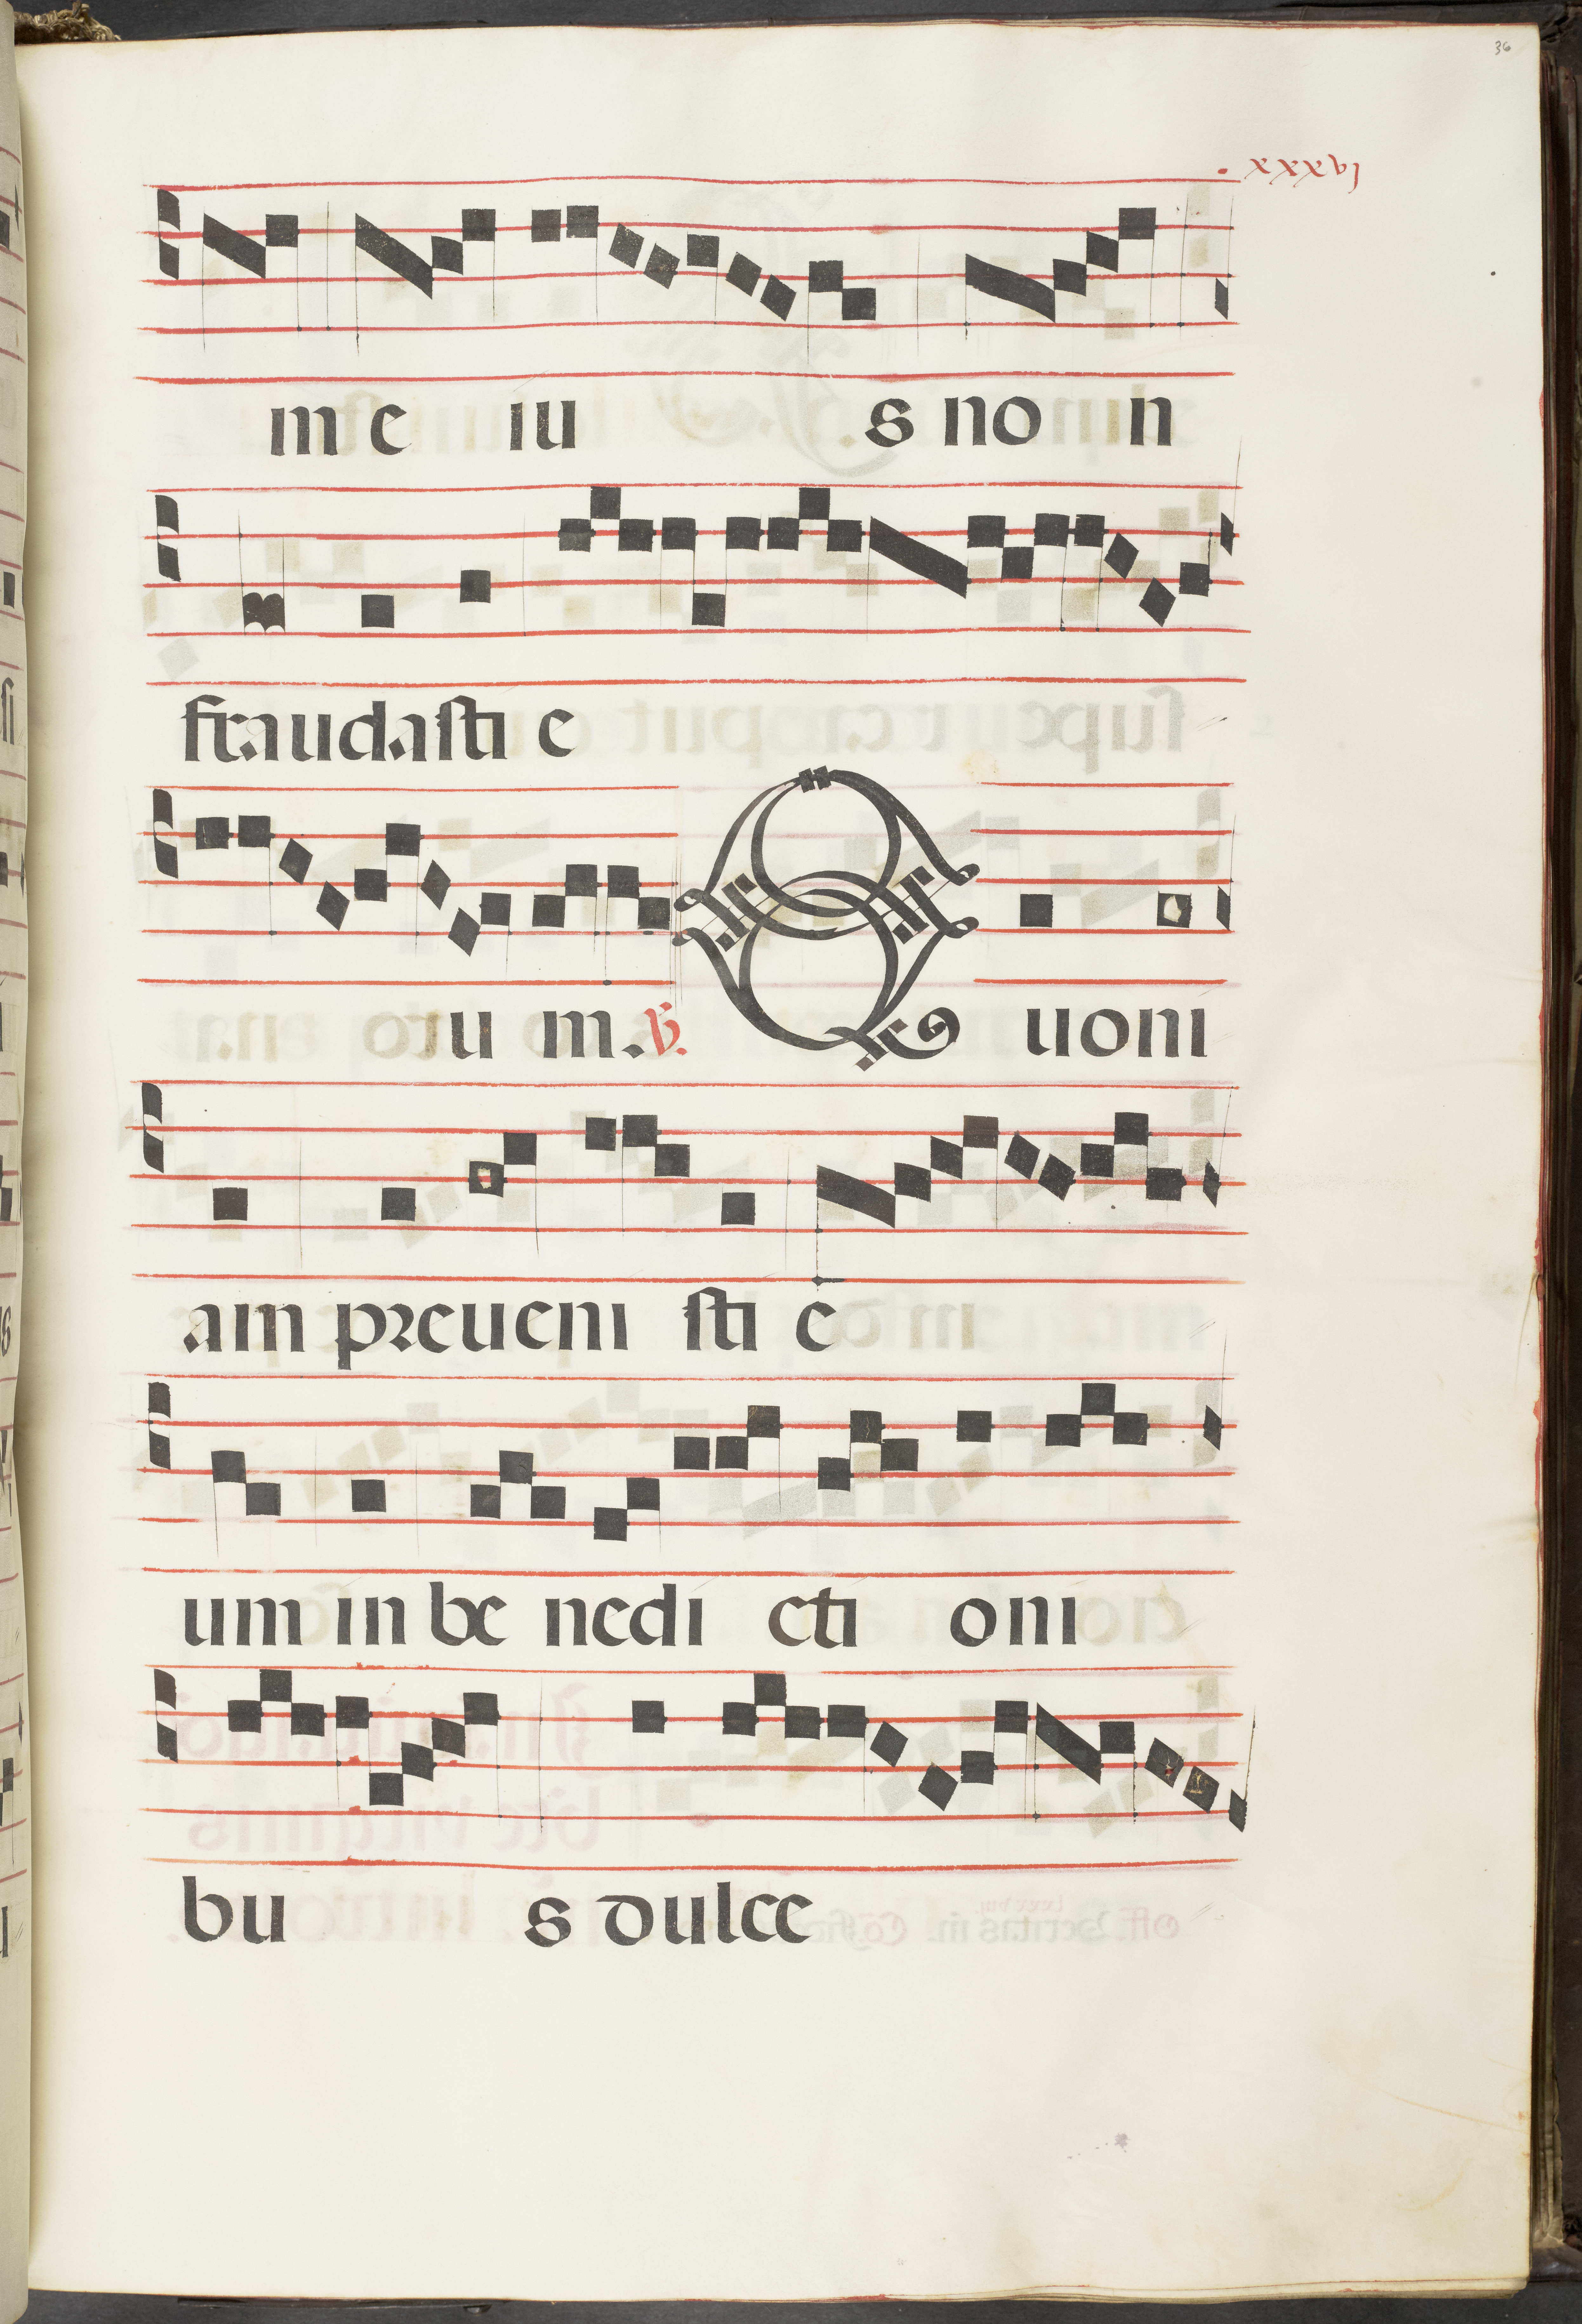 36
. xxxvj
m e iu s no n
fraudasti e
ru m. ℣. Quoni
am preueni sti e
um in be nedi cti oni
bu s dulce